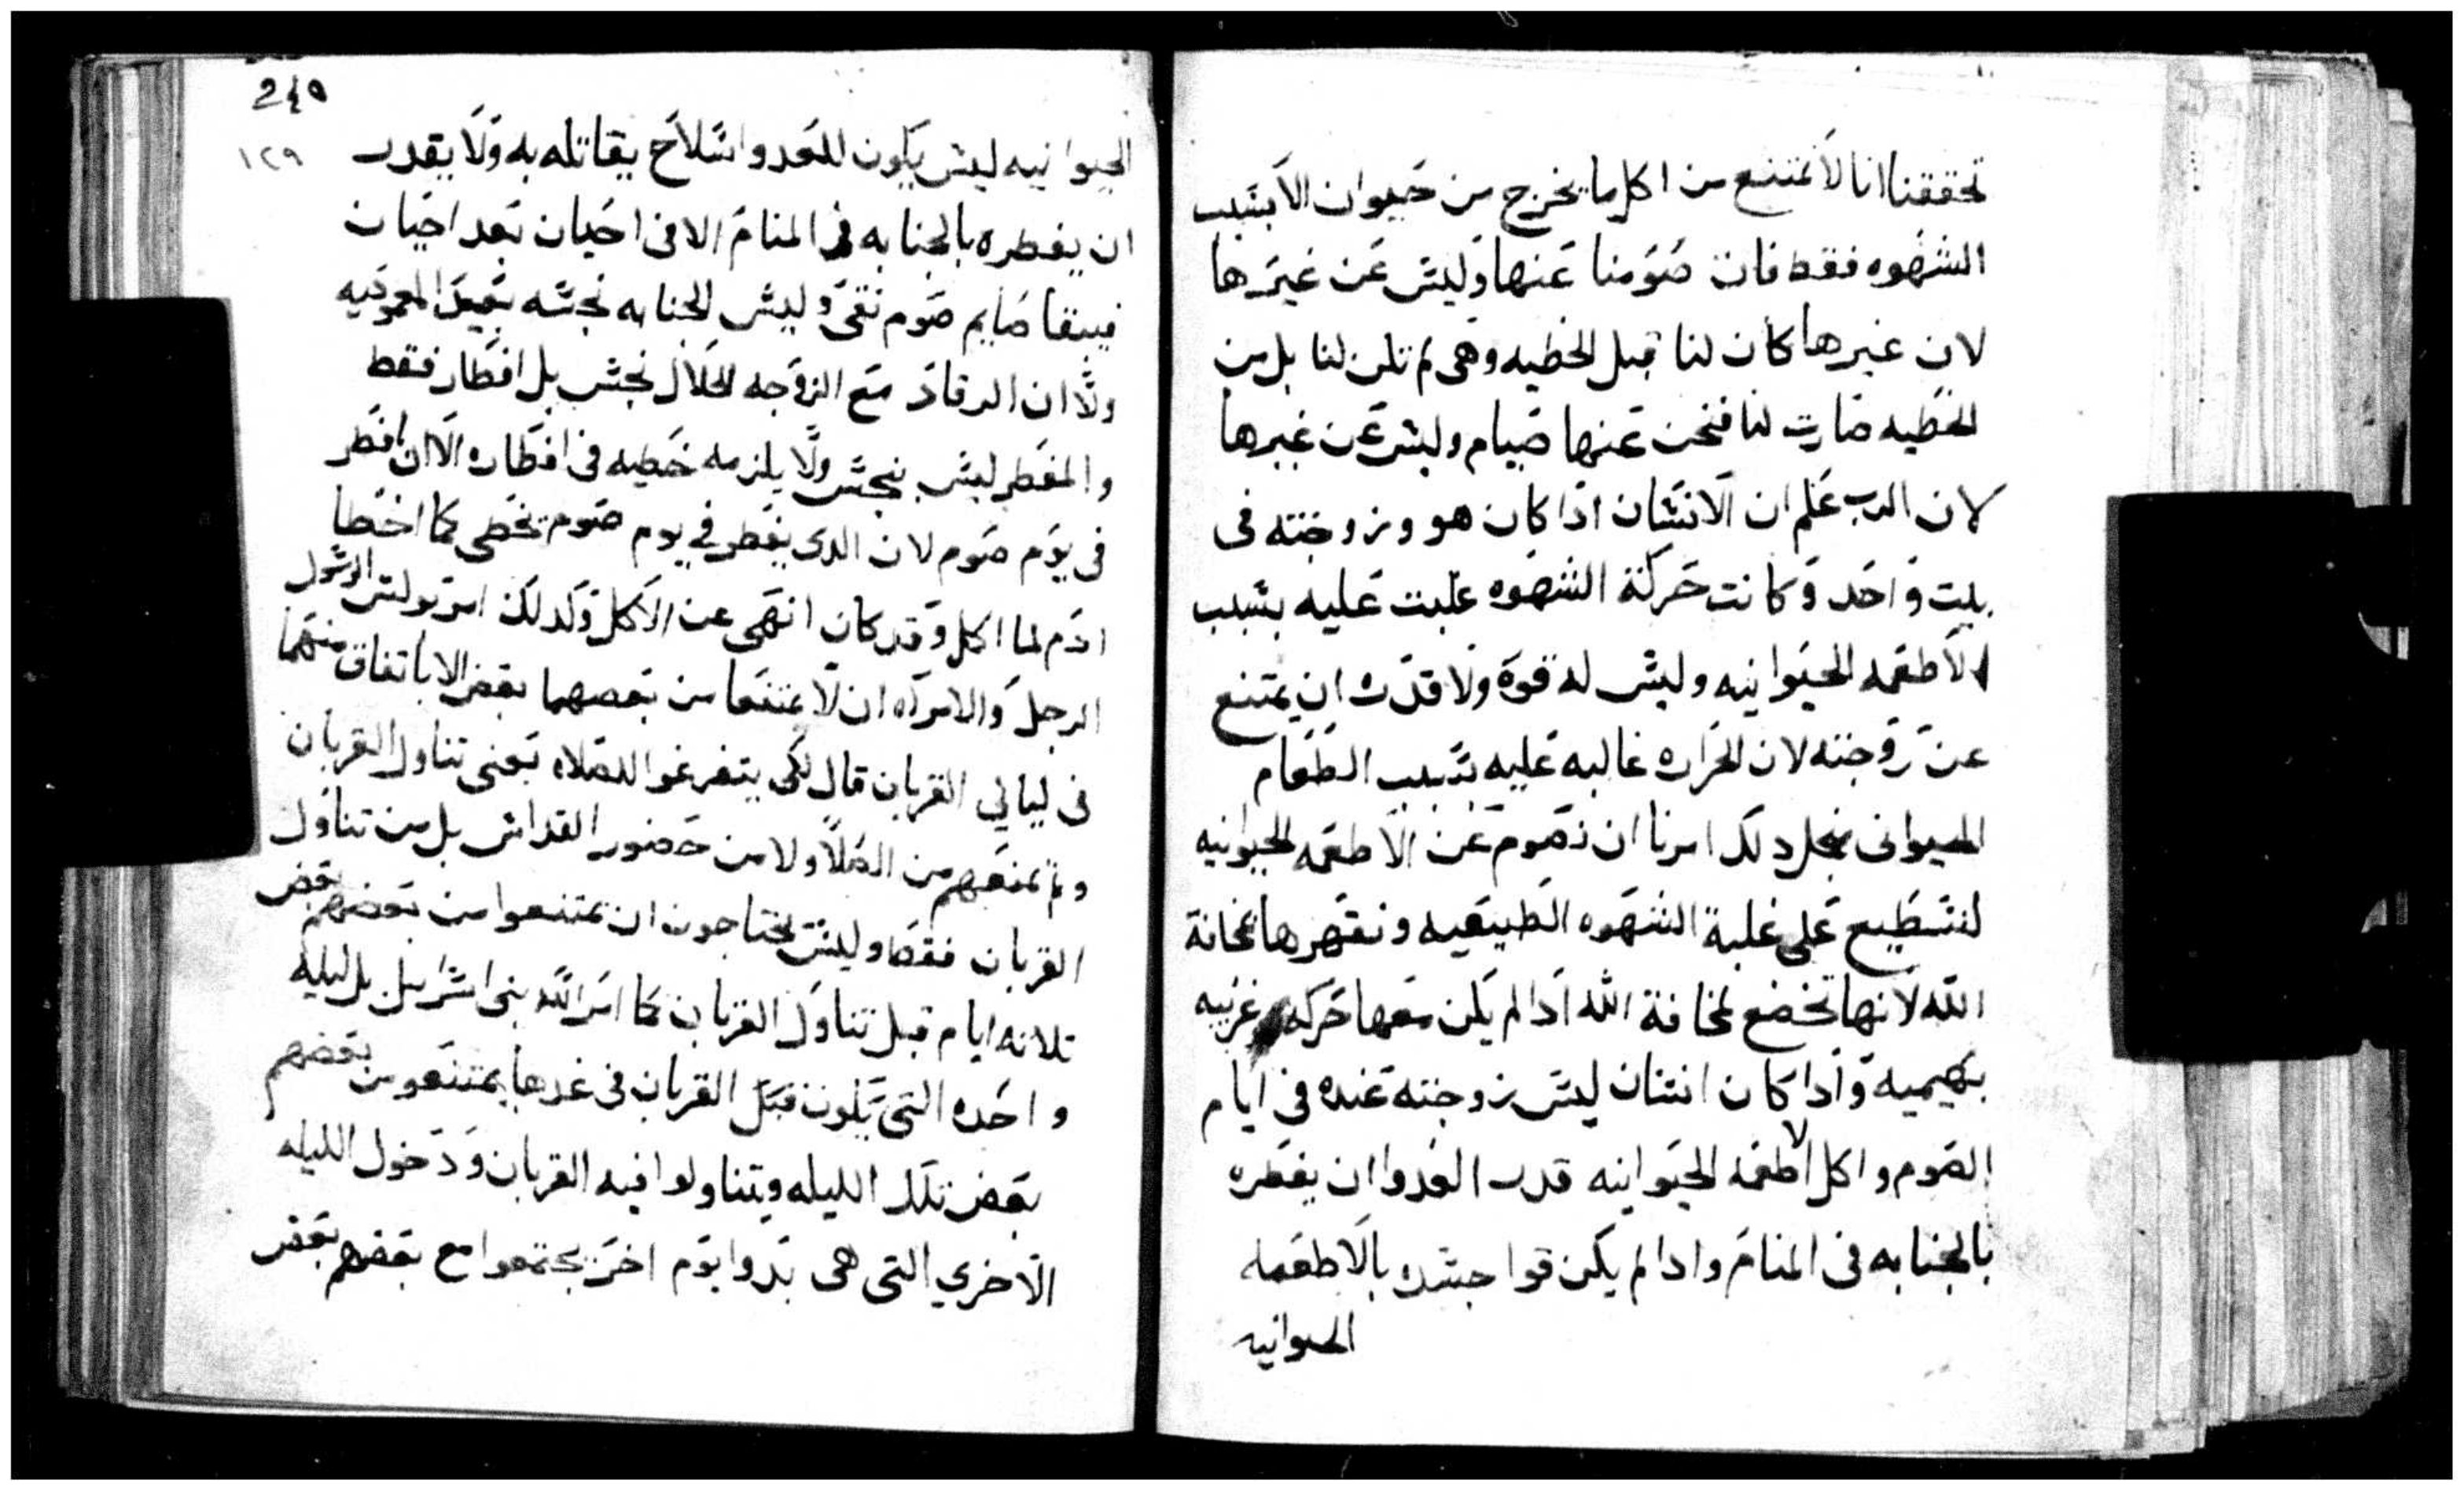 تحققنا انا لا نمتنع من اكل ما يخرج من حيوان الا بسبب
الشهوه فقط فان صومنا عنها وليس عن غيرها
لان غيرها كان لنا قبل الخطيه وهى لم تكن لنا بل من
الخطيه صارت لنا فنحن عنها صيام وليس عن غيرها
لان الرب علم ان الانسان اذا كان هو وزوجته فى
بيت واحد وكانت حركة الشهوه غلبت عليه بسبب
الاطعمه الحيوانيه وليس له قوه ولا قدره ان يمتنع
عن زوجته لان الحراره غالبه عليه بسبب الطعام
الحيوانى فمن اجل دلك امرنا ان نصوم عن الاطعمه الحيوانيه
لنستطيع على غلبة الشهوه الطبيعيه ونقهرها بمخافة
الله لانها تخضع لمخافة الله ادا لم يكن معها حركه غريبه
بهيميه وادا كان انسان ليس زوجته عنده فى ايام
الصوم واكل الاطعمه الحيوانيه قدر العدوا ان يفطره
بالجنابه فى المنام وادا لم يكن قوا جسده بالاطعمه
الحيوانيه
245
١٢٩
الحيوانيه ليس يكون للعدوا سلاح يقاتله به ولا يقدر
ان يفطره بالجنابه فى المنام الا فى احيان بعد احيان
فيبقا صايم صوم نقى وليس الجنابه نجسه بعد المعموديه
ولا ان الرقاد مع الزوجه الحلال نجس بل افطار فقط
والمفطر ليس بنجس ولا يلزمه خطيه فى افطاره الا ان افطر
فى يوم صوم لان الدى يفطر فى يوم صوم يخطى كما اخطا
ادم لما اكل وقد كان انهى عن الاكل وكدلك امر بولس الرسول
الرجل والامراه ان لا يمتنعا من بعضهما بعض الا باتفاق منهما
فى ليالي القربان قال لكى يتفرغوا للصلاه يعنى تناول القربان
ولم يمنعهم من الصلا ولا من حضور القداس بل من تناول
القربان فقط وليس يحتاجون ان يمتنعوا من بعضهم بعض
تلاته ايام قبل تناول القربان كما امر الله بنى اسراييل بل ليله
واحده التى يكون قبل القربان فى غدها يمتنعو من بعضهم
بعض تلك الليله ويتناولوا فيه القربان ودخول الليله
الاخري التى هى بدوا يوم اخر يجتمعوا مع بعضهم بعض